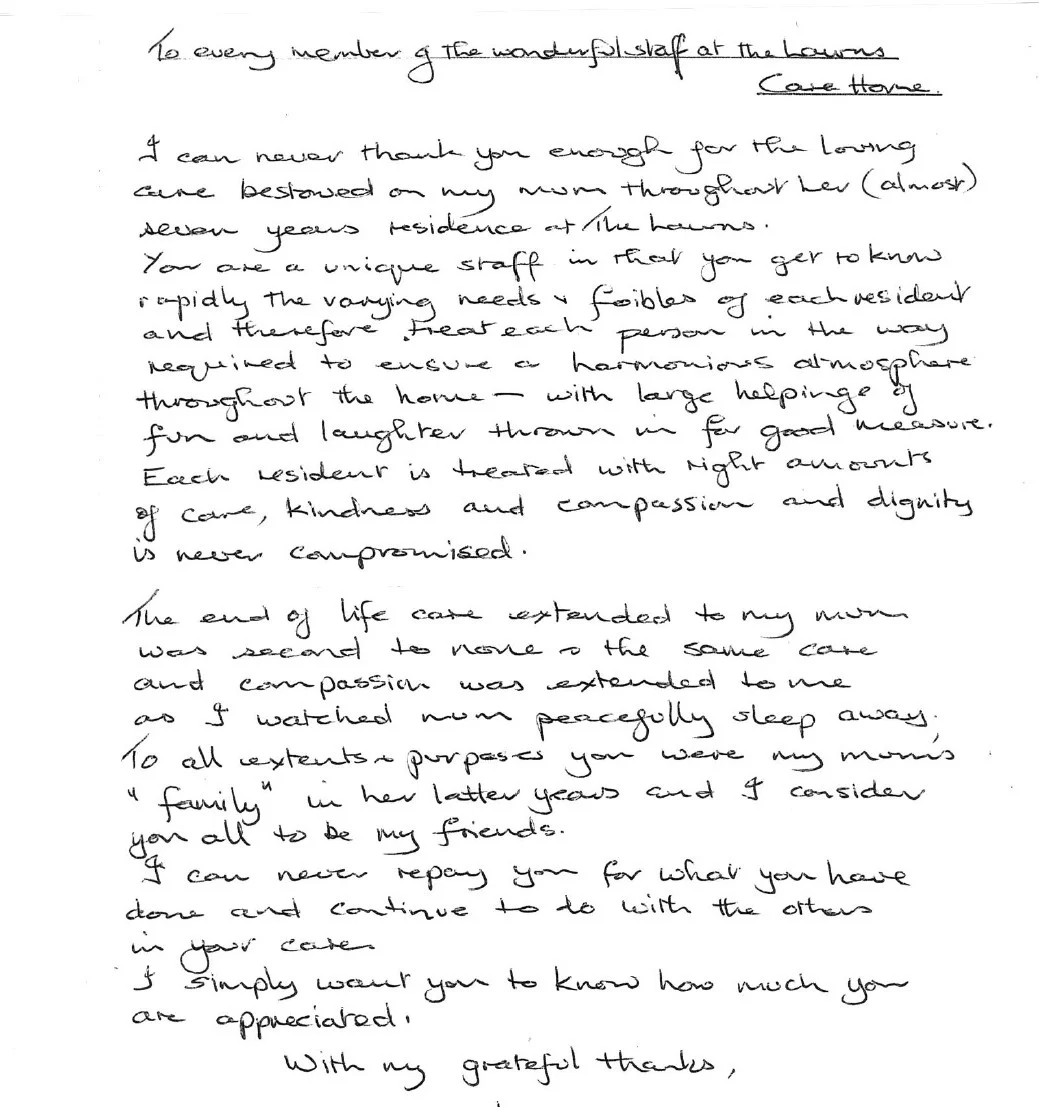 To every member of the wonderful staff at the Lawns
Care Home.
I can never thank you enough for the loving
care bestowed on my mum throughout her (almost)
seven years residence at The Lawns.
You are a unique staff in that you get to know
rapidly the varying needs & foibles of each resident
and therefore treat each person in the way
required to ensure a harmonious atmosphere
throughout the home — with large helpings of
fun and laughter thrown in for good measure.
Each resident is treated with right amounts
of care, kindness and compassion and dignity
is never compromised.
The end of life care extended to my mum
was second to none & the same care
and compassion was extended to me
as I watched mum peacefully sleep away.
To all extents & purposes you were my mum's
"family" in her latter years and I consider
you all to be my friends.
I can never repay you for what you have
done and continue to do with the others
in your care.
I simply want you to know how much you
are appreciated.
With my grateful thanks,